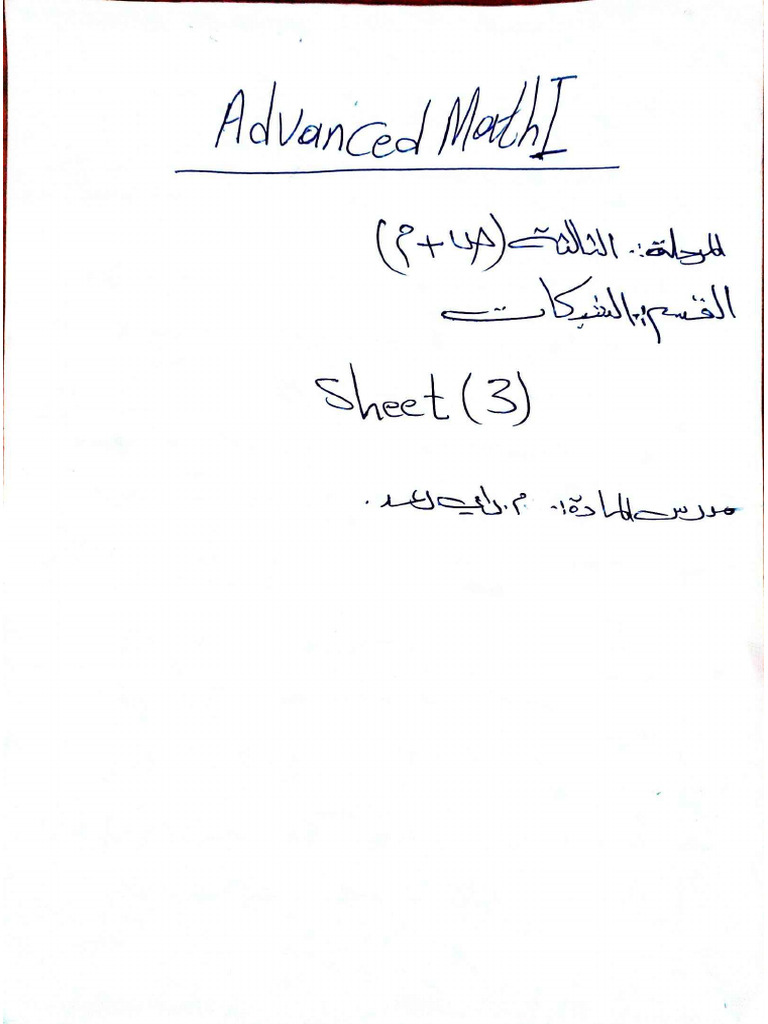 Advanced Math I
المرحلة:. الثالثة (ص + م)
القسم:. الشبكات
Sheet (3)
مدرس المادة:. م. رعد